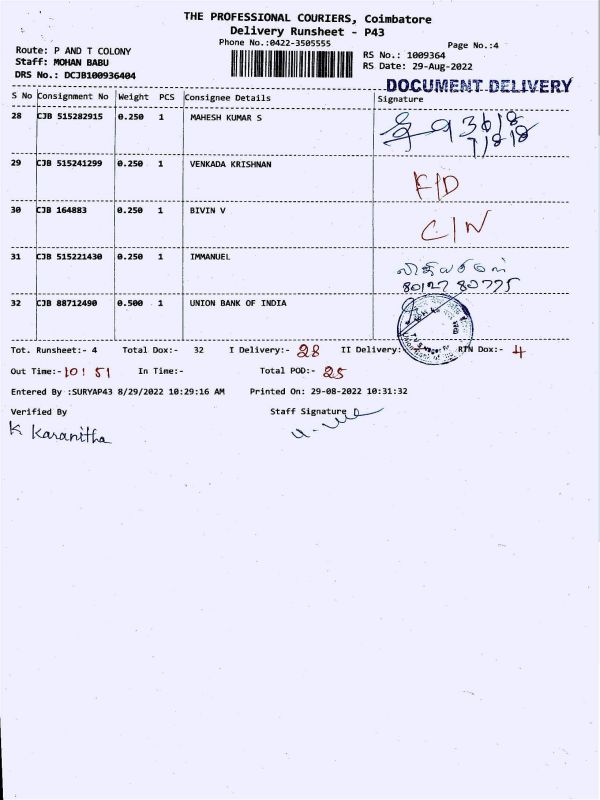 THE PROFESSIONAL COURIERS, Coimbatore
Delivery Runsheet - P43
Phone No.:0422-3505555
Page No.:4
Route: P AND T COLONY
Staff: MOHAN BABU
DRS No.: DCJB100936404
RS No.: 1009364
RS Date: 29-Aug-2022
DOCUMENT DELIVERY
S No Consignment No Weight PCS Consignee Details Signature
28 CJB 515282915 0.250 1 MAHESH KUMAR S
29 CJB 515241299 0.250 1 VENKADA KRISHNAN F/D
30 CJB 164883 0.250 1 BIVIN V C/N
31 CJB 515221430 0.250 1 IMMANUEL
80127 80775
32 CJB 88712490 0.500 1 UNION BANK OF INDIA
Tot. Runsheet:- 4 Total Dox:- 32 I Delivery:- 28 II Delivery: RTN Dox:- 4
Out Time:-10:51 In Time:- Total POD:- 25
Entered By :SURYAP43 8/29/2022 10:29:16 AM Printed On: 29-08-2022 10:31:32
Verified By Staff Signature
K Karanitha